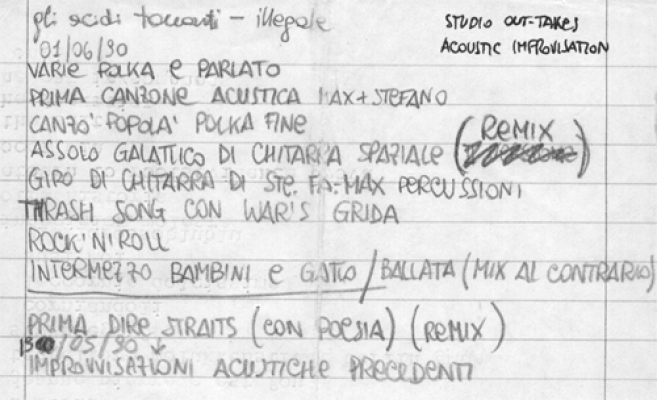 gli acidi tonanti - illegale
STUDIO OUT-TAKES
'01/06/90
ACOUSTIC IMPROVISATION
VARIE POLKA E PARLATO
PRIMA CANZONE ACUSTICA MAX+STEFANO
CANZO' POPOLA' POLKA FINE
ASSOLO GALATTICO DI CHITARRA SPAZIALE (REMIX)
GIRO DI CHITARRA DI STE. FA. MAX PERCUSSIONI
THRASH SONG CON WAR'S GRIDA
ROCK'N'ROLL
INTERMEZZO BAMBINI e GATTO / BALLATA (MIX AL CONTRARIO)
PRIMA DIRE STRAITS (CON POESIA) (REMIX)
/05/90 ↓
IMPROVVISAZIONI ACUSTICHE PRECEDENTI